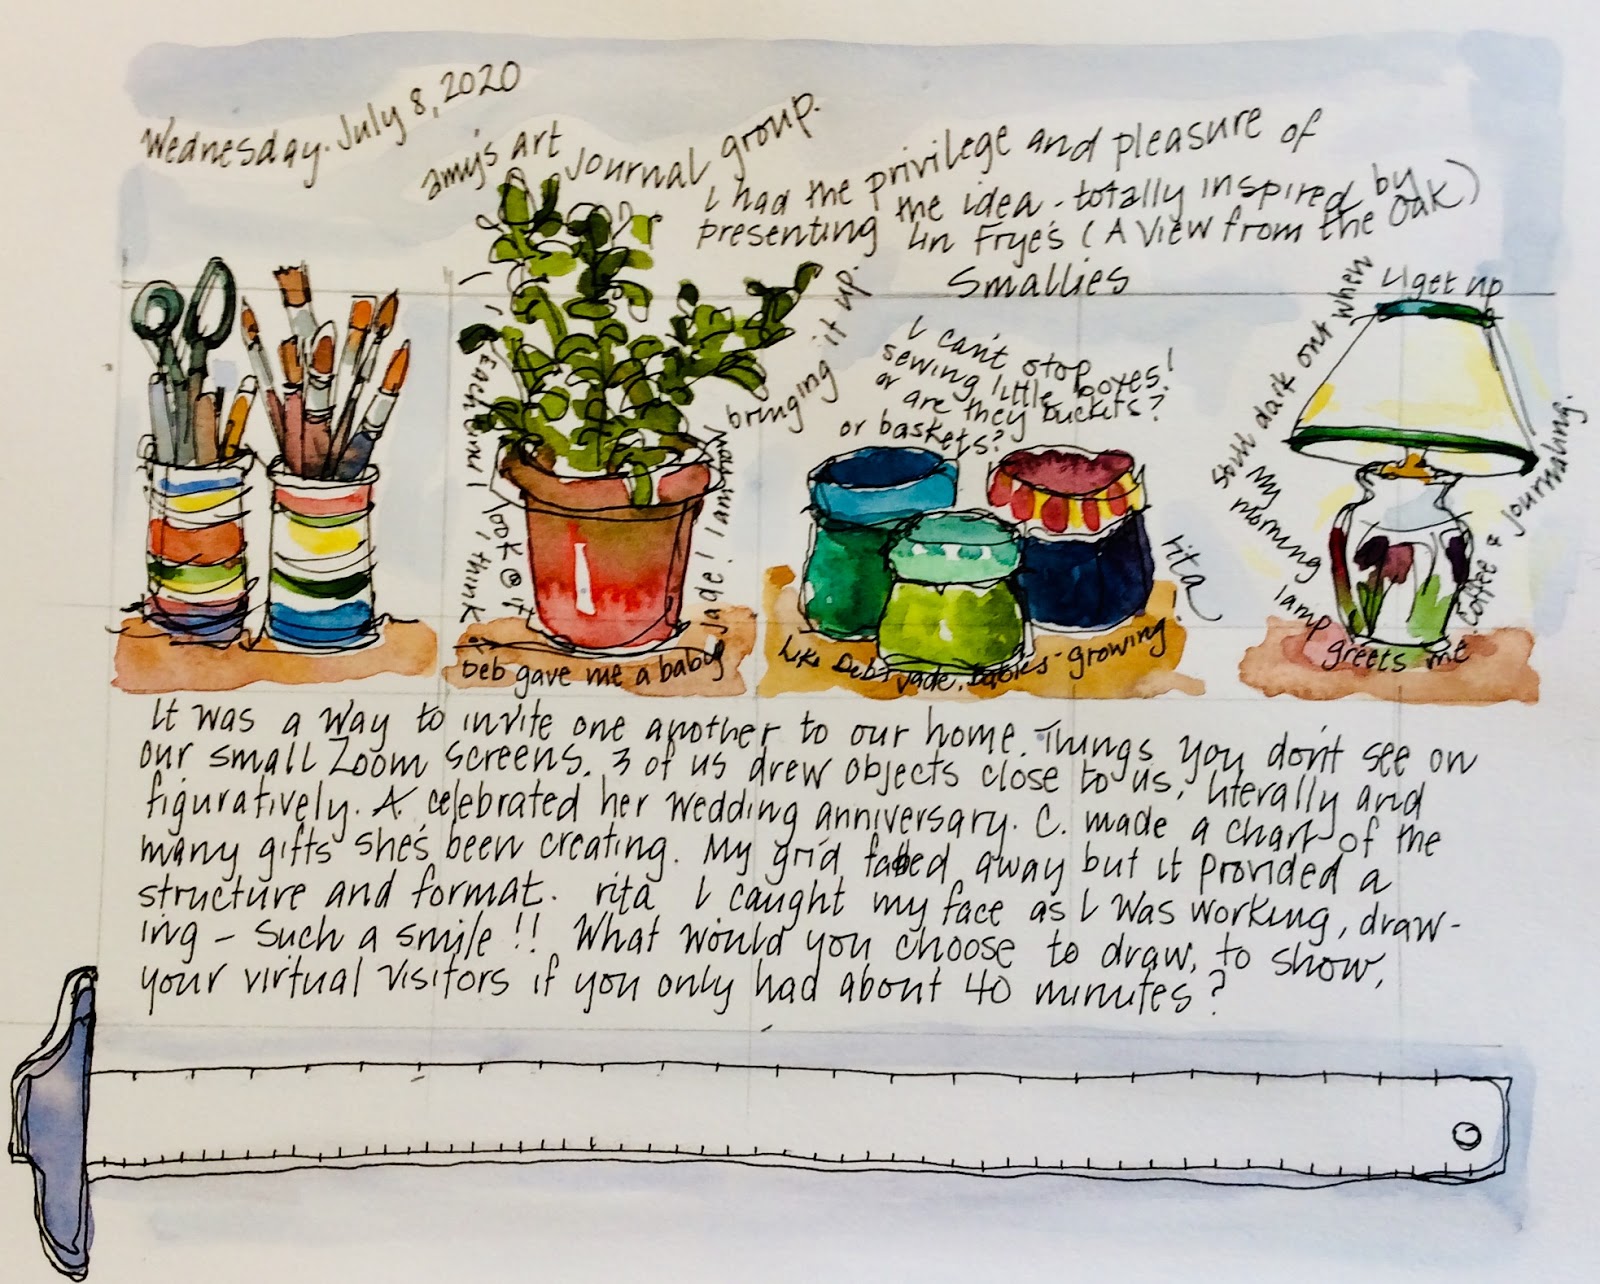 Wednesday. July 8, 2020
amy's art journal group.
I had the privilege and pleasure of
presenting the idea - totally inspired by
Lin Frye's (A View from the Oak)
Smallies
Each time I look @ it, I think
Deb gave me a baby
jade! Now I am
bringing it up.
I can't stop
sewing little boxes!
or are they buckets?
or baskets?
Like Deb's jade, babies - growing!
rita
My morning lamp
greets me
Still dark out when
I get up
Coffee & journaling.
It was a way to invite one another to our home. Things you don't see on
our small Zoom screens. 3 of us drew objects close to us, literally and
figuratively. A celebrated her wedding anniversary. C. made a chart of the
many gifts she's been creating. My grid faded away but it provided a
structure and format. rita I caught my face as I was working, draw-
ing - such a smile!! What would you choose to draw, to show,
your virtual visitors if you only had about 40 minutes?